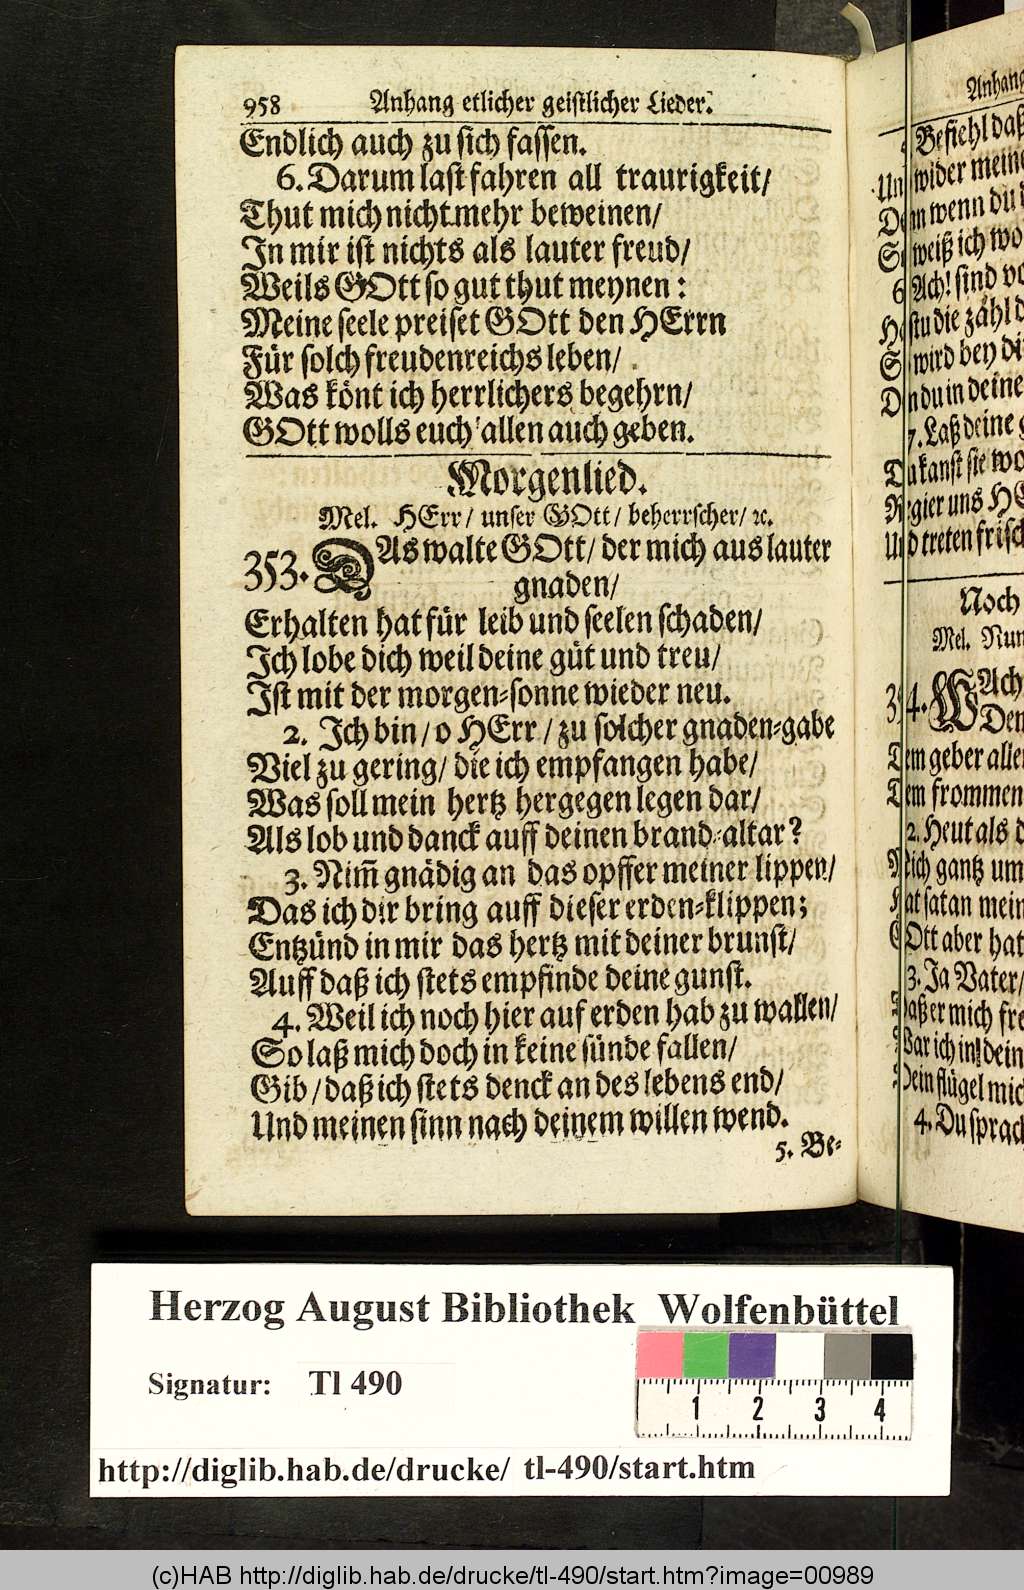 958 Anhang etlicher geistlicher Lieder.
Endlich auch zu sich fassen.
6. Darum last fahren all traurigkeit/
Thut mich nicht mehr beweinen/
In mir ist nichts als lauter freud/
Weils GOtt so gut thut meynen:
Meine seele preiset GOtt den HErrn
Für solch freudenreichs leben/
Was könt ich herrlichers begehrn/
GOtt wolls euch allen auch geben.
Morgenlied.
Mel. HErr/ unser GOtt/ beherrscher/ ꝛc.
353. DAs walte GOtt/ der mich aus lauter
gnaden/
Erhalten hat für leib und seelen schaden/
Ich lobe dich weil deine güt und treu/
Ist mit der morgen-sonne wieder neu.
2. Ich bin/ o HErr/ zu solcher gnaden-gabe
Viel zu gering/ die ich empfangen habe/
Was soll mein hertz hergegen legen dar/
Als lob und danck auff deinen brand-altar?
3. Nim̃ gnädig an das opffer meiner lippen/
Das ich dir bring auff dieser erden-klippen;
Entzünd in mir das hertz mit deiner brunst/
Auff daß ich stets empfinde deine gunst.
4. Weil ich noch hier auf erden hab zu wallen/
So laß mich doch in keine sünde fallen/
Gib/ daß ich stets denck an des lebens end/
Und meinen sinn nach deinem willen wend.
5. Be-
Anhang
Befiehl daß
wider meine
wenn du
weiß ich wo
Ach! sind
die zähl
wird bey
du in deine
7. Laß deine
kanst sie wo
uns
treten frisch
Noch
Mel. Nun
354. WAch
Dem
Dem geber aller
Dem frommen
2. Heut als
Mich gantz um
Hat satan mein
GOtt aber hat
3. Ja Vater/
Daß er mich
War ich in dein
Dein flügel
4. Du sprach
Herzog August Bibliothek Wolfenbüttel
Signatur: Tl 490
1 2 3 4
http://diglib.hab.de/drucke/ tl-490/start.htm
(c)HAB http://diglib.hab.de/drucke/tl-490/start.htm?image=00989